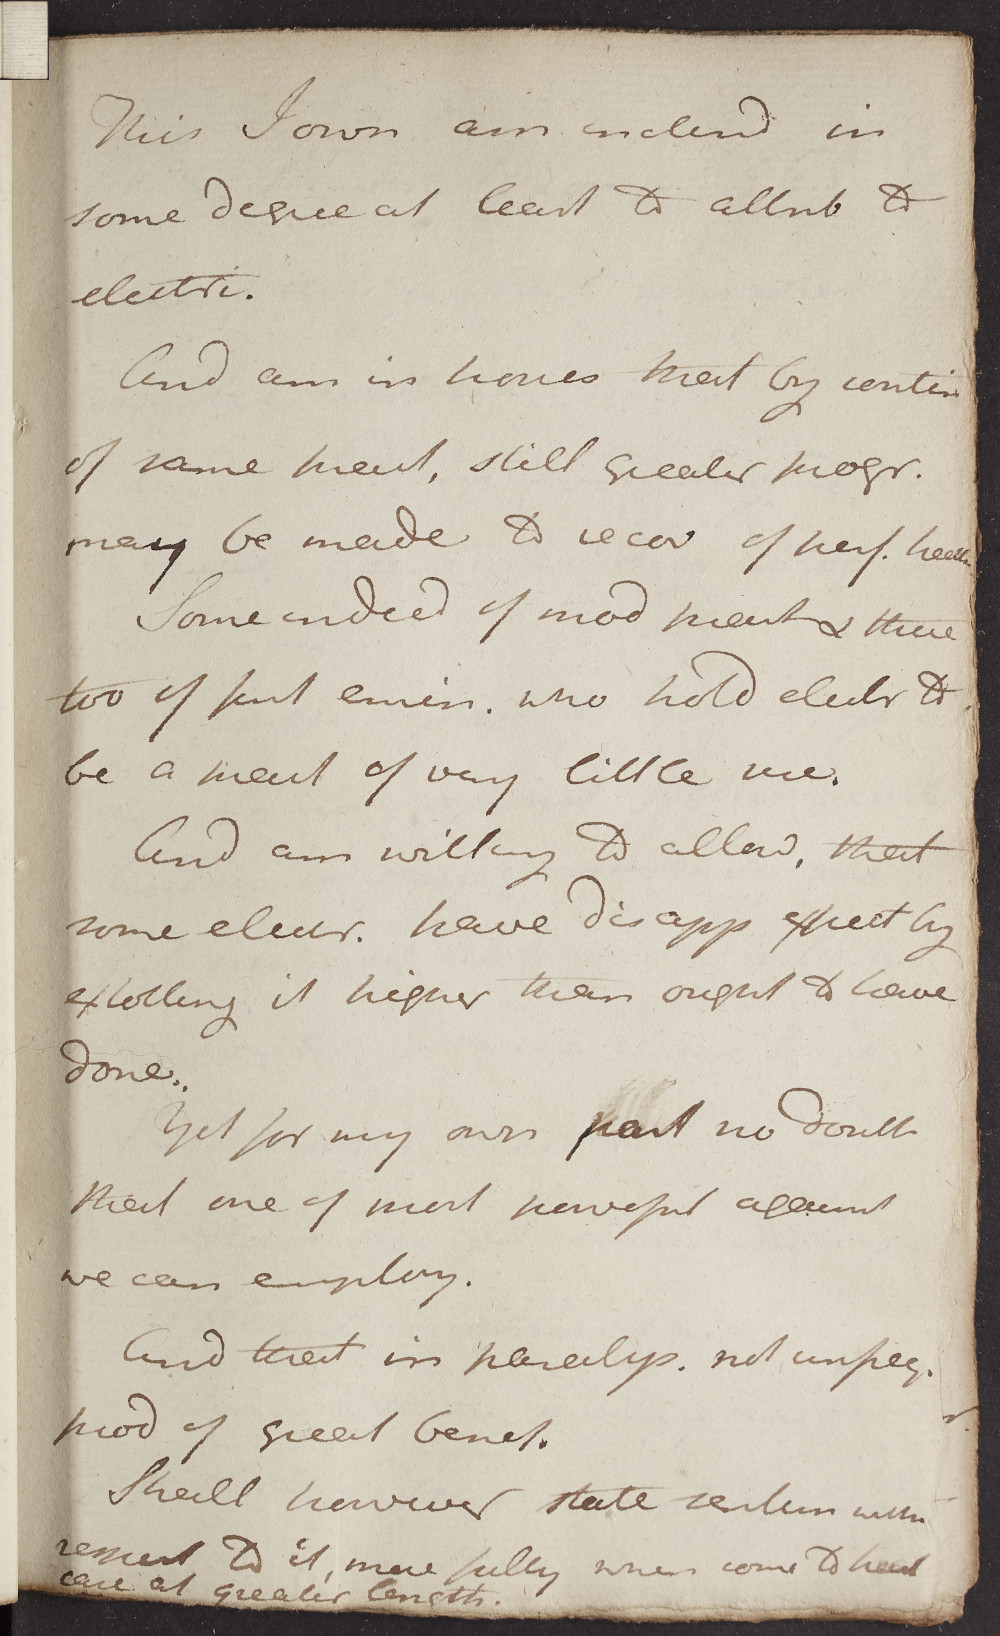 This I own am inclind in
some degree at least to attrib to
electri.
And am in hopes that by contin
of same treat, still greater progr.
may be made to recov of perf. health
Some indeed of mod pract & those
too of first emin. who hold electr to
be a meat of very little use.
And am willing to allow, that
some electr. have disapp expect by
extolling it higher than ought to have
done.
Yet for my own part no doubt
that one of most powerful against
we can employ.
And that in paralys. not unfreq.
prod of great benef.
Shall however state sentim with
respect to it, more fully when come to treat
case at greater length.